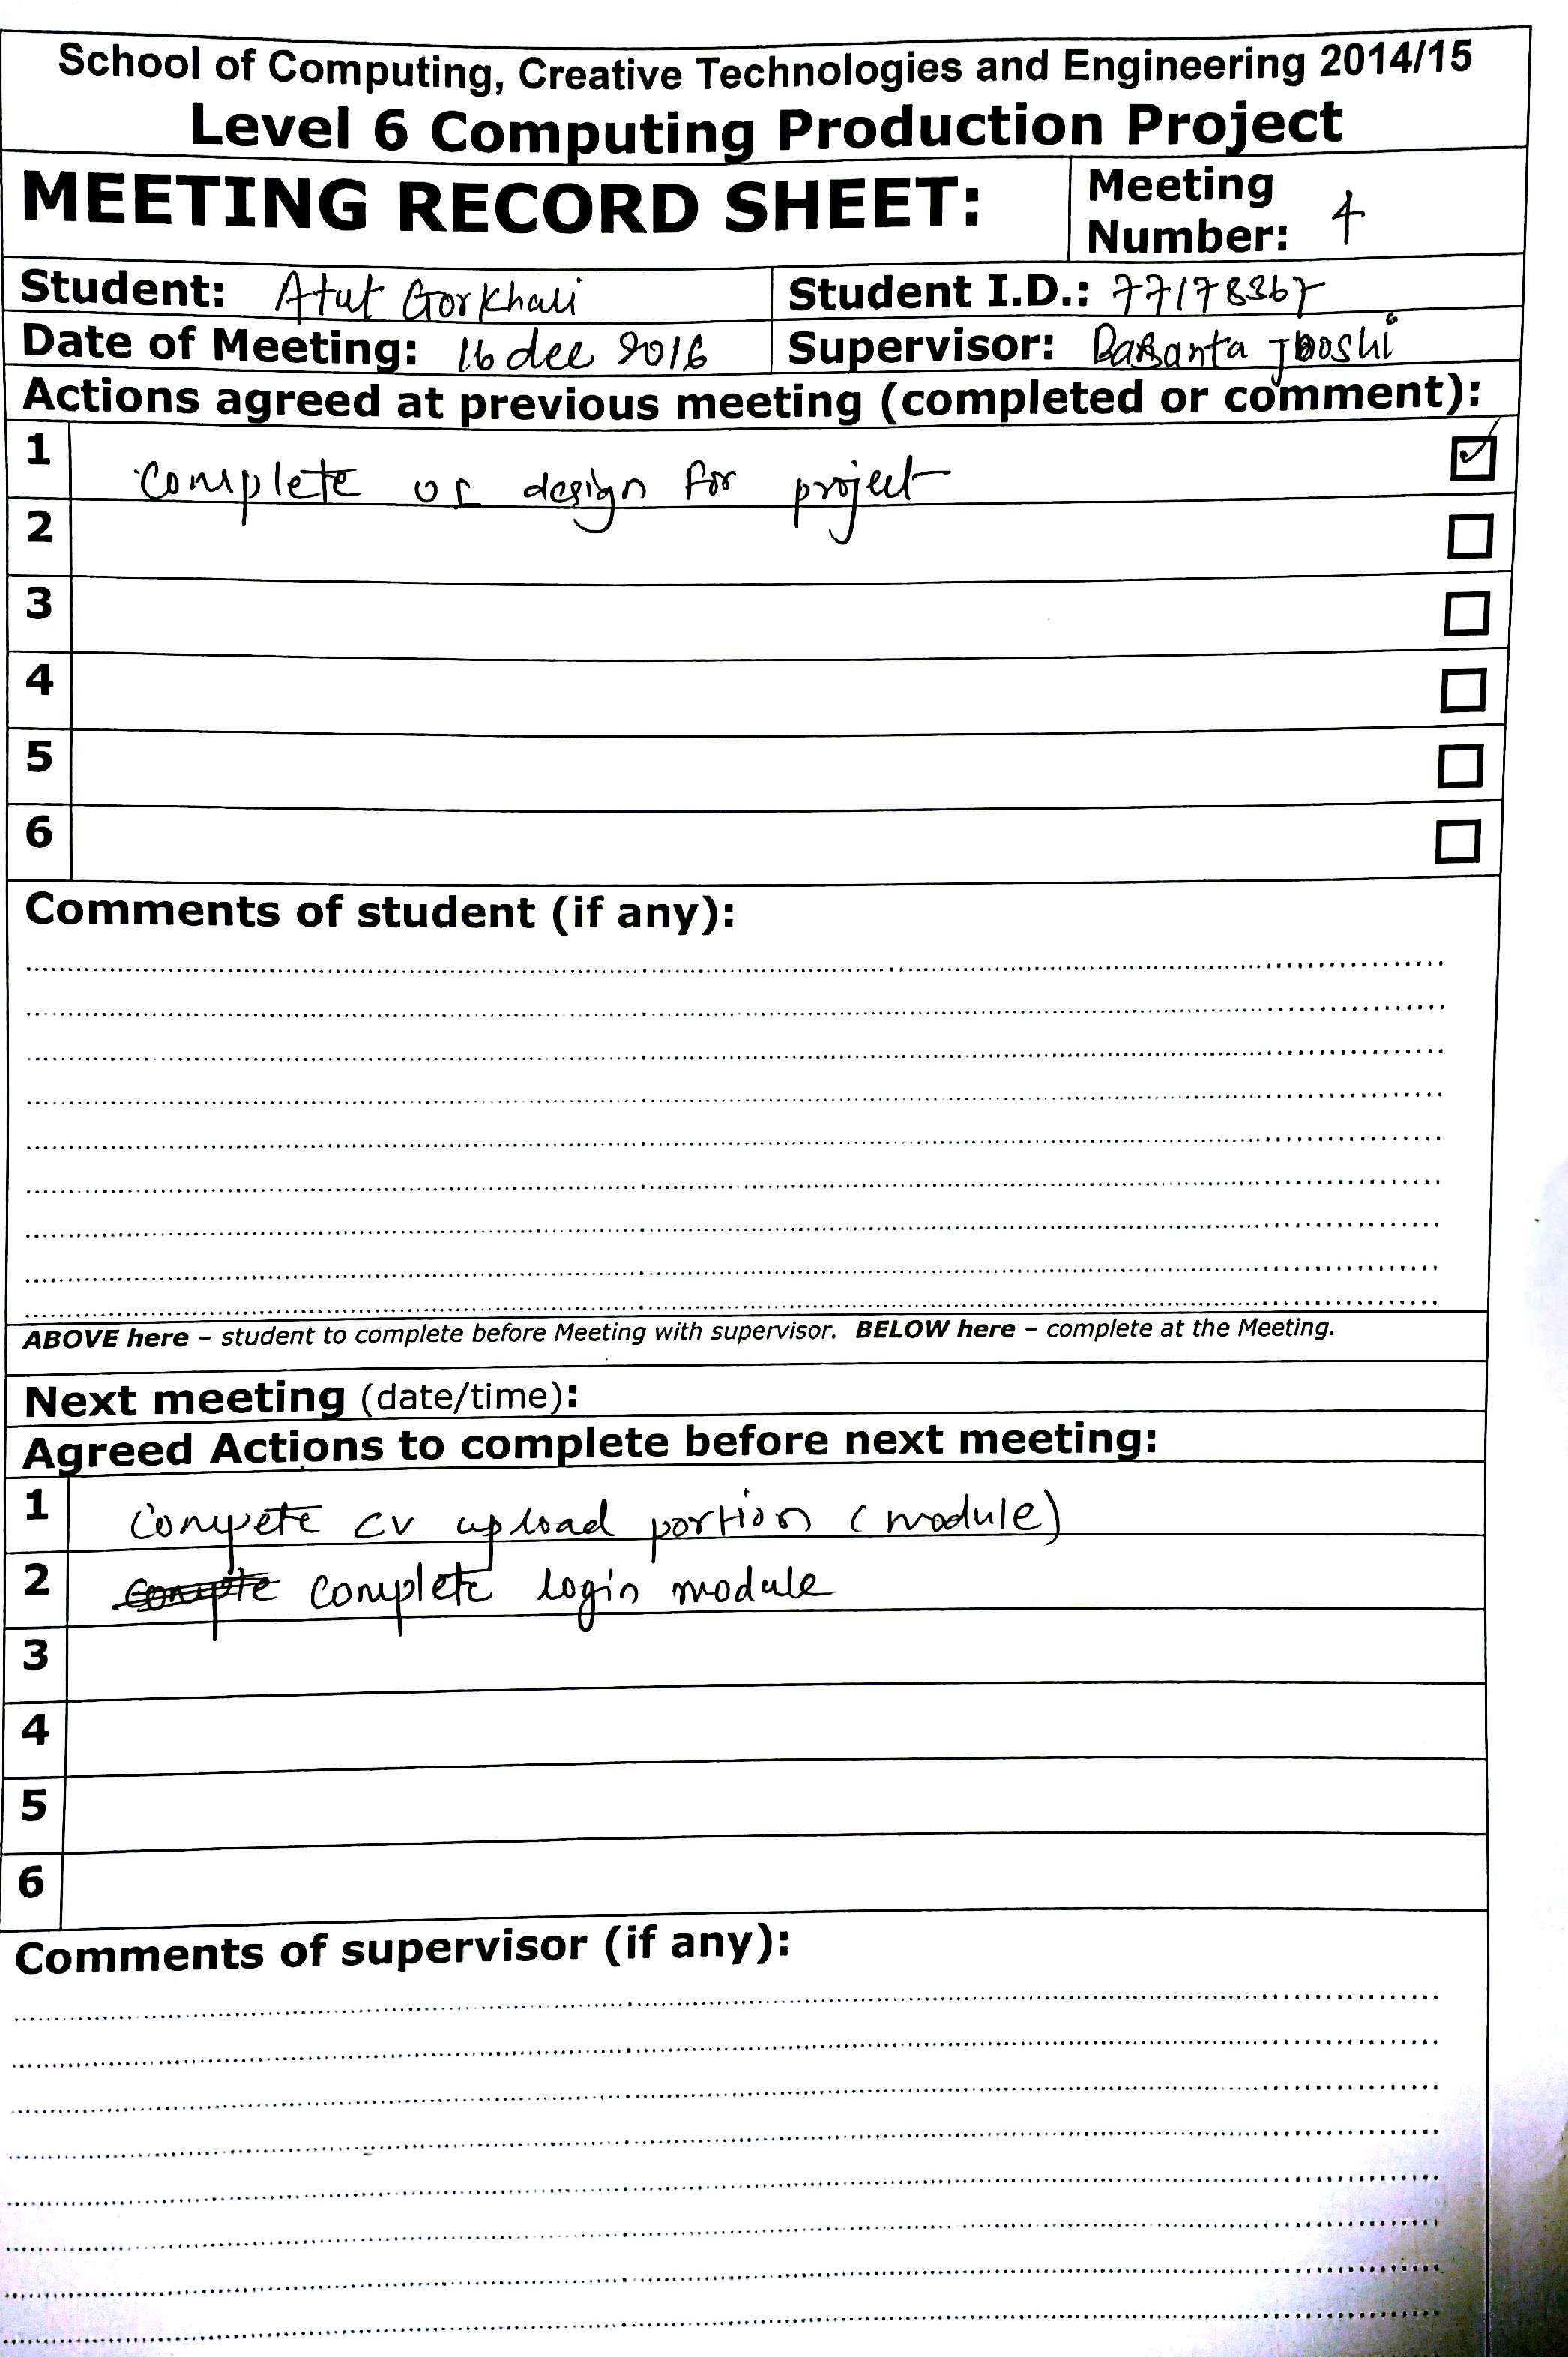 School of Computing, Creative Technologies and Engineering 2014/15
Level 6 Computing Production Project
MEETING RECORD SHEET:
Meeting Number: 4
Student: Atut Gorkhali
Student I.D.: 77178367
Date of Meeting: 16 dec 2016
Supervisor: Joshi
Actions agreed at previous meeting (completed or comment):
1 Complete design for project
2
3
4
5
6
Comments of student (if any):
ABOVE here – student to complete before Meeting with supervisor. BELOW here – complete at the Meeting.
Next meeting (date/time):
Agreed Actions to complete before next meeting:
1 Compete cv upload portion (module)
2 complete login module
3
4
5
6
Comments of supervisor (if any):